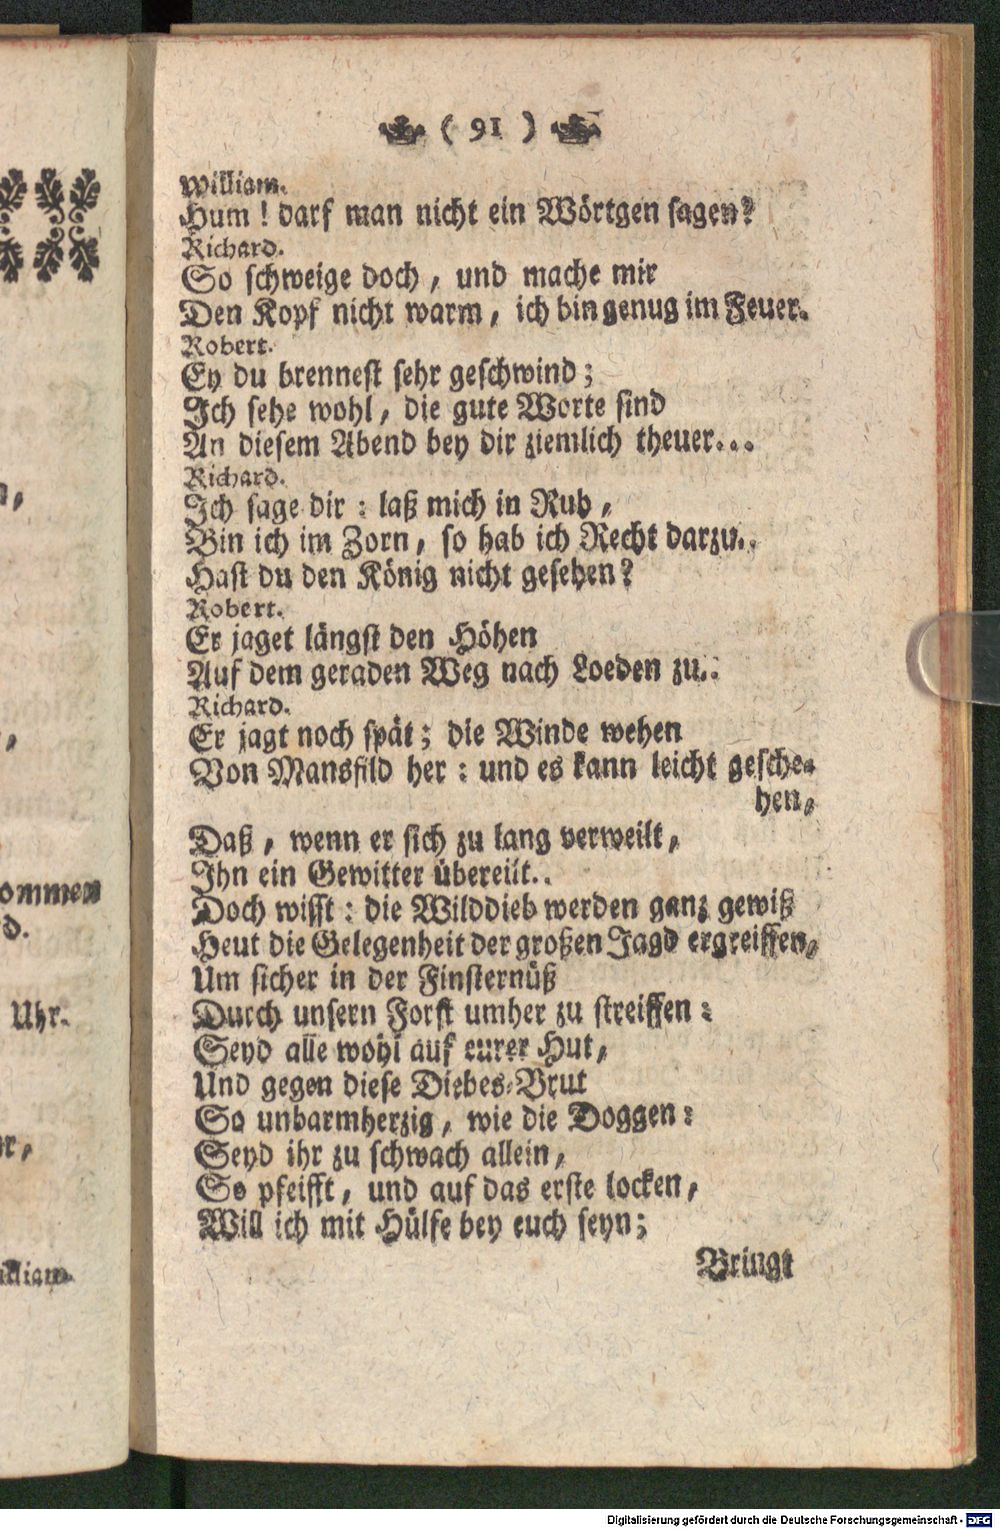 ( 91 )
William.
Hum! darf man nicht ein Wörtgen sagen?
Richard.
So schweige doch, und mache mir
Den Kopf nicht warm, ich bin genug im Feuer.
Robert.
Ey du brennest sehr geschwind;
Ich sehe wohl, die gute Worte sind
An diesem Abend bey dir ziemlich theuer...
Richard.
Ich sage dir: laß mich in Ruh,
Bin ich im Zorn, so hab ich Recht darzu..
Hast du den König nicht gesehen?
Robert.
Er jaget längst den Höhen
Auf dem geraden Weg nach Loeden zu..
Richard.
Er jagt noch spät; die Winde wehen
Von Mansfild her: und es kann leicht gesche-
hen,
Daß, wenn er sich zu lang verweilt,
Ihn ein Gewitter übereilt..
Doch wisst: die Wilddieb werden ganz gewiß
Heut die Gelegenheit der großen Jagd ergreiffen,
Um sicher in der Finsternüß
Durch unsern Forst umher zu streiffen:
Seyd alle wohl auf eurer Hut,
Und gegen diese Diebes-Brut
So unbarmherzig, wie die Doggen:
Seyd ihr zu schwach allein,
So pfeifft, und auf das erste locken,
Will ich mit Hülfe bey euch seyn;
Bringt
ommen
d.
Uhr.
illiam.
Digitalisierung gefördert durch die Deutsche Forschungsgemeinschaft - DFG